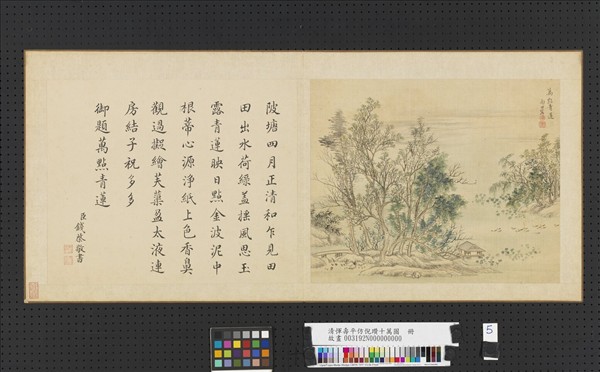 陂塘四月正清和乍見田
田出水荷綠蓋搖風思玉
露青蓮映日點金波泥中
根蒂心源淨紙上色香鼻
觀過擬繪芙蕖益太液連
房結子祝多多
御題萬點青蓮
臣錢棨敬書
萬點青蓮
清惲壽平仿倪瓚十萬圖 冊
故畫 003192N000000000
5